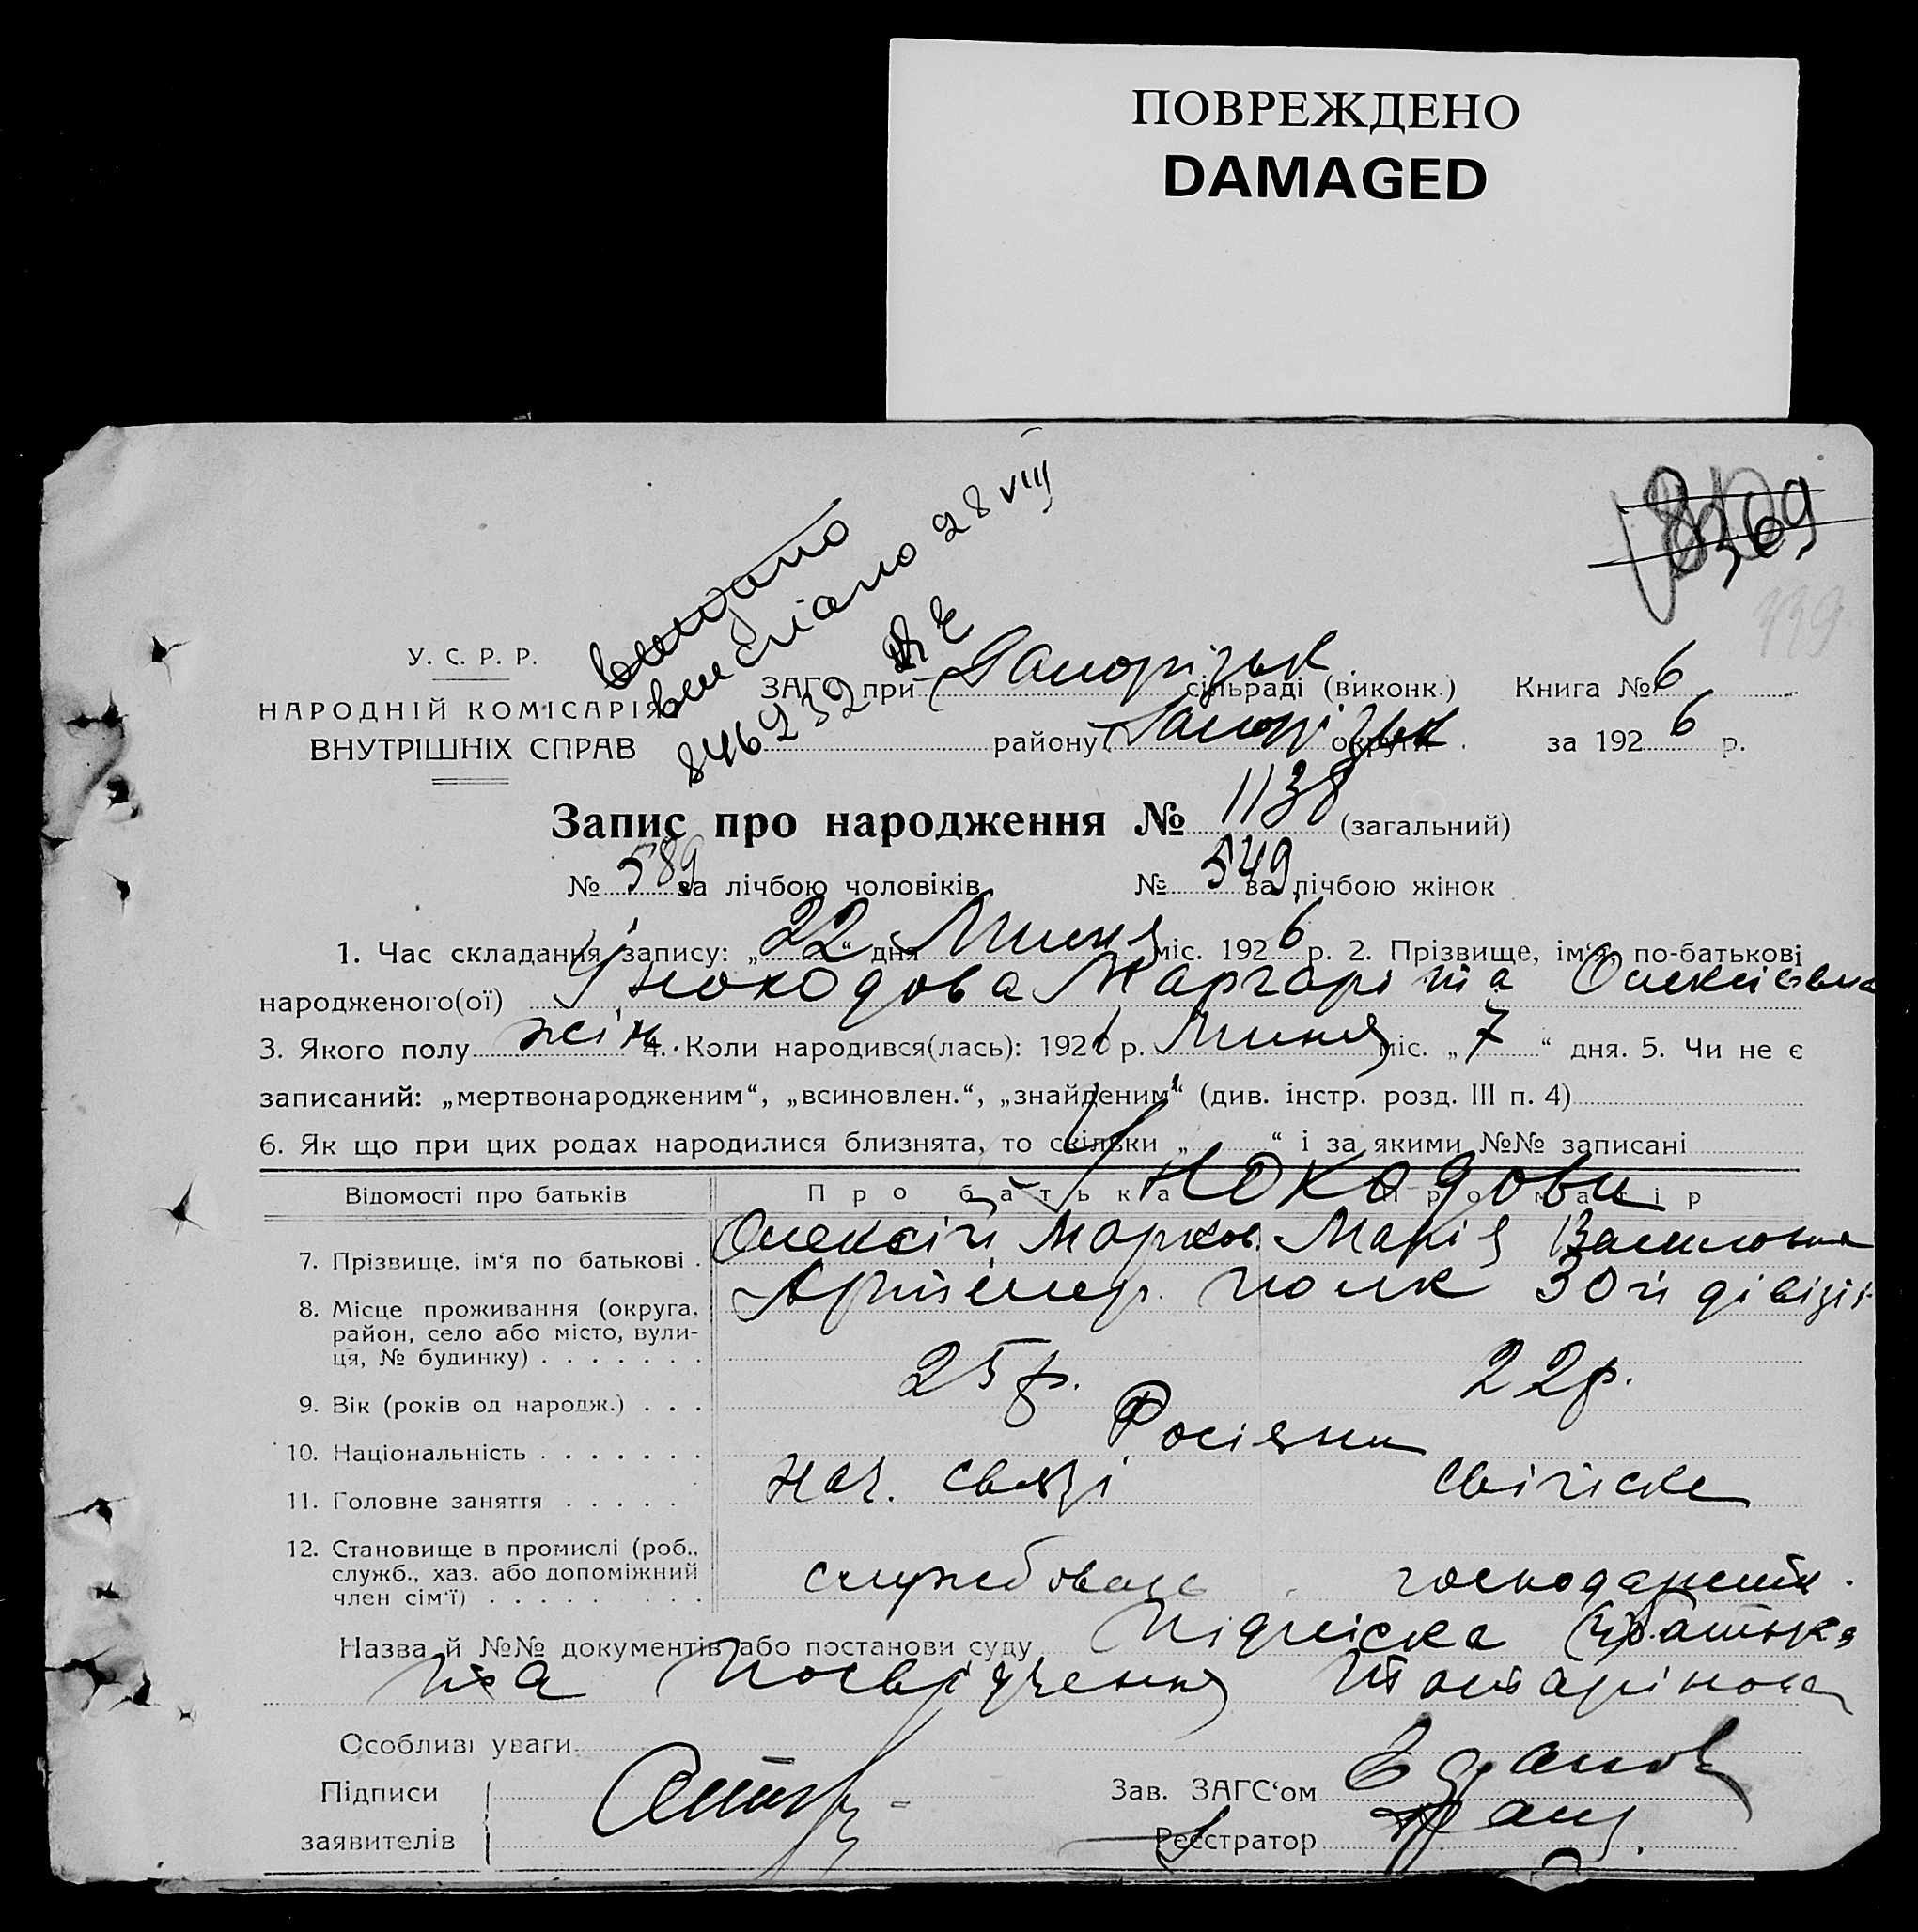 ПОВРЕЖДЕНО
DAMAGED
8369
739
видано
вислано 28 VIII
846232
У. С. Р. Р.
НАРОДНІЙ КОМІСАРІЯТ
ВНУТРІШНІХ СПРАВ
ЗАГС при Запорізьк. сільраді (виконк.) Книга № 6
району Запорізьк округи. за 1926 р.
Запис про народження № 1138 (загальний)
№ 589 за лічбою чоловіків. № 549 за лічбою жінок
1. Час складання запису: „22“ дня Липня міс. 1926 р. 2. Прізвище, ім'я, по-батькові
народженого(ої) Маргаріта Олексіївна
3. Якого полу жін. 4. Коли народився(лась): 1926 р. Липня міс. „7“ дня. 5. Чи не є
записаний: „мертвонародженим“, „всиновлен.“, „знайденим“ (див. інстр. розд. III п. 4)
6. Як що при цих родах народилися близнята, то скільки „ “ і за якими №№ записані
Відомості про батьків Про батька Про матір
7. Прізвище, ім'я по батькові . Олексій Марков. Марія Василовна
8. Місце проживання (округа, район, село або місто, вулиця, № будинку) . . . . . . . Артилер. полк 30й дівізії
9. Вік (років од народж.) . . . 25 р. 22 р.
10. Національність . . . . . . . Росіяни
11. Головне заняття . . . . . Нач. связі
12. Становище в промислі (роб., служб., хаз. або допоміжний член сім'ї) службовець господарств.
Назва й №№ документів або постанови суду Підпіска батька
та посвідчення
Особливі уваги
Підписи
заявителів
Зав. ЗАГС'ом
Реєстратор